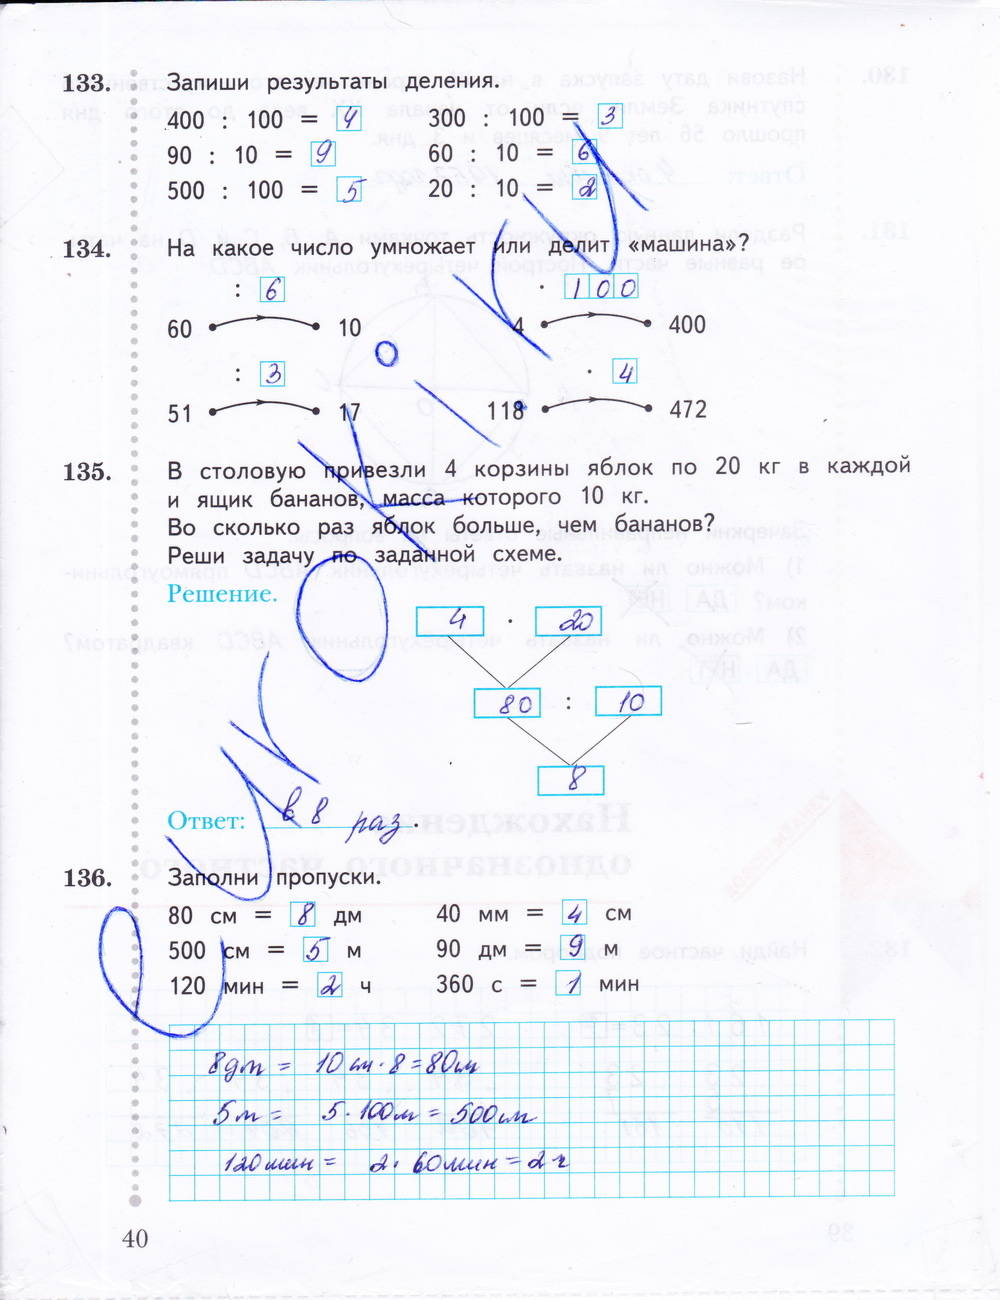 133. Запиши результаты деления.
400 : 100 = 4 300 : 100 = 3
90 : 10 = 9 60 : 10 = 6
500 : 100 = 5 20 : 10 = 2
134. На какое число умножает или делит «машина»?
: 6 · 100
60 10 4 400
: 3 · 4
51 17 118 472
135. В столовую привезли 4 корзины яблок по 20 кг в каждой
и ящик бананов, масса которого 10 кг.
Во сколько раз яблок больше, чем бананов?
Реши задачу по заданной схеме.
Решение.
4 · 20
80 : 10
8
Ответ: в 8 раз.
136. Заполни пропуски.
80 см = 8 дм 40 мм = 4 см
500 см = 5 м 90 дм = 9 м
120 мин = 2 ч 360 с = 1 мин
8дм = 10 см · 8 = 80м
5м = 5 · 100м = 500см
120мин = 2 · 60мин = 2ч
40